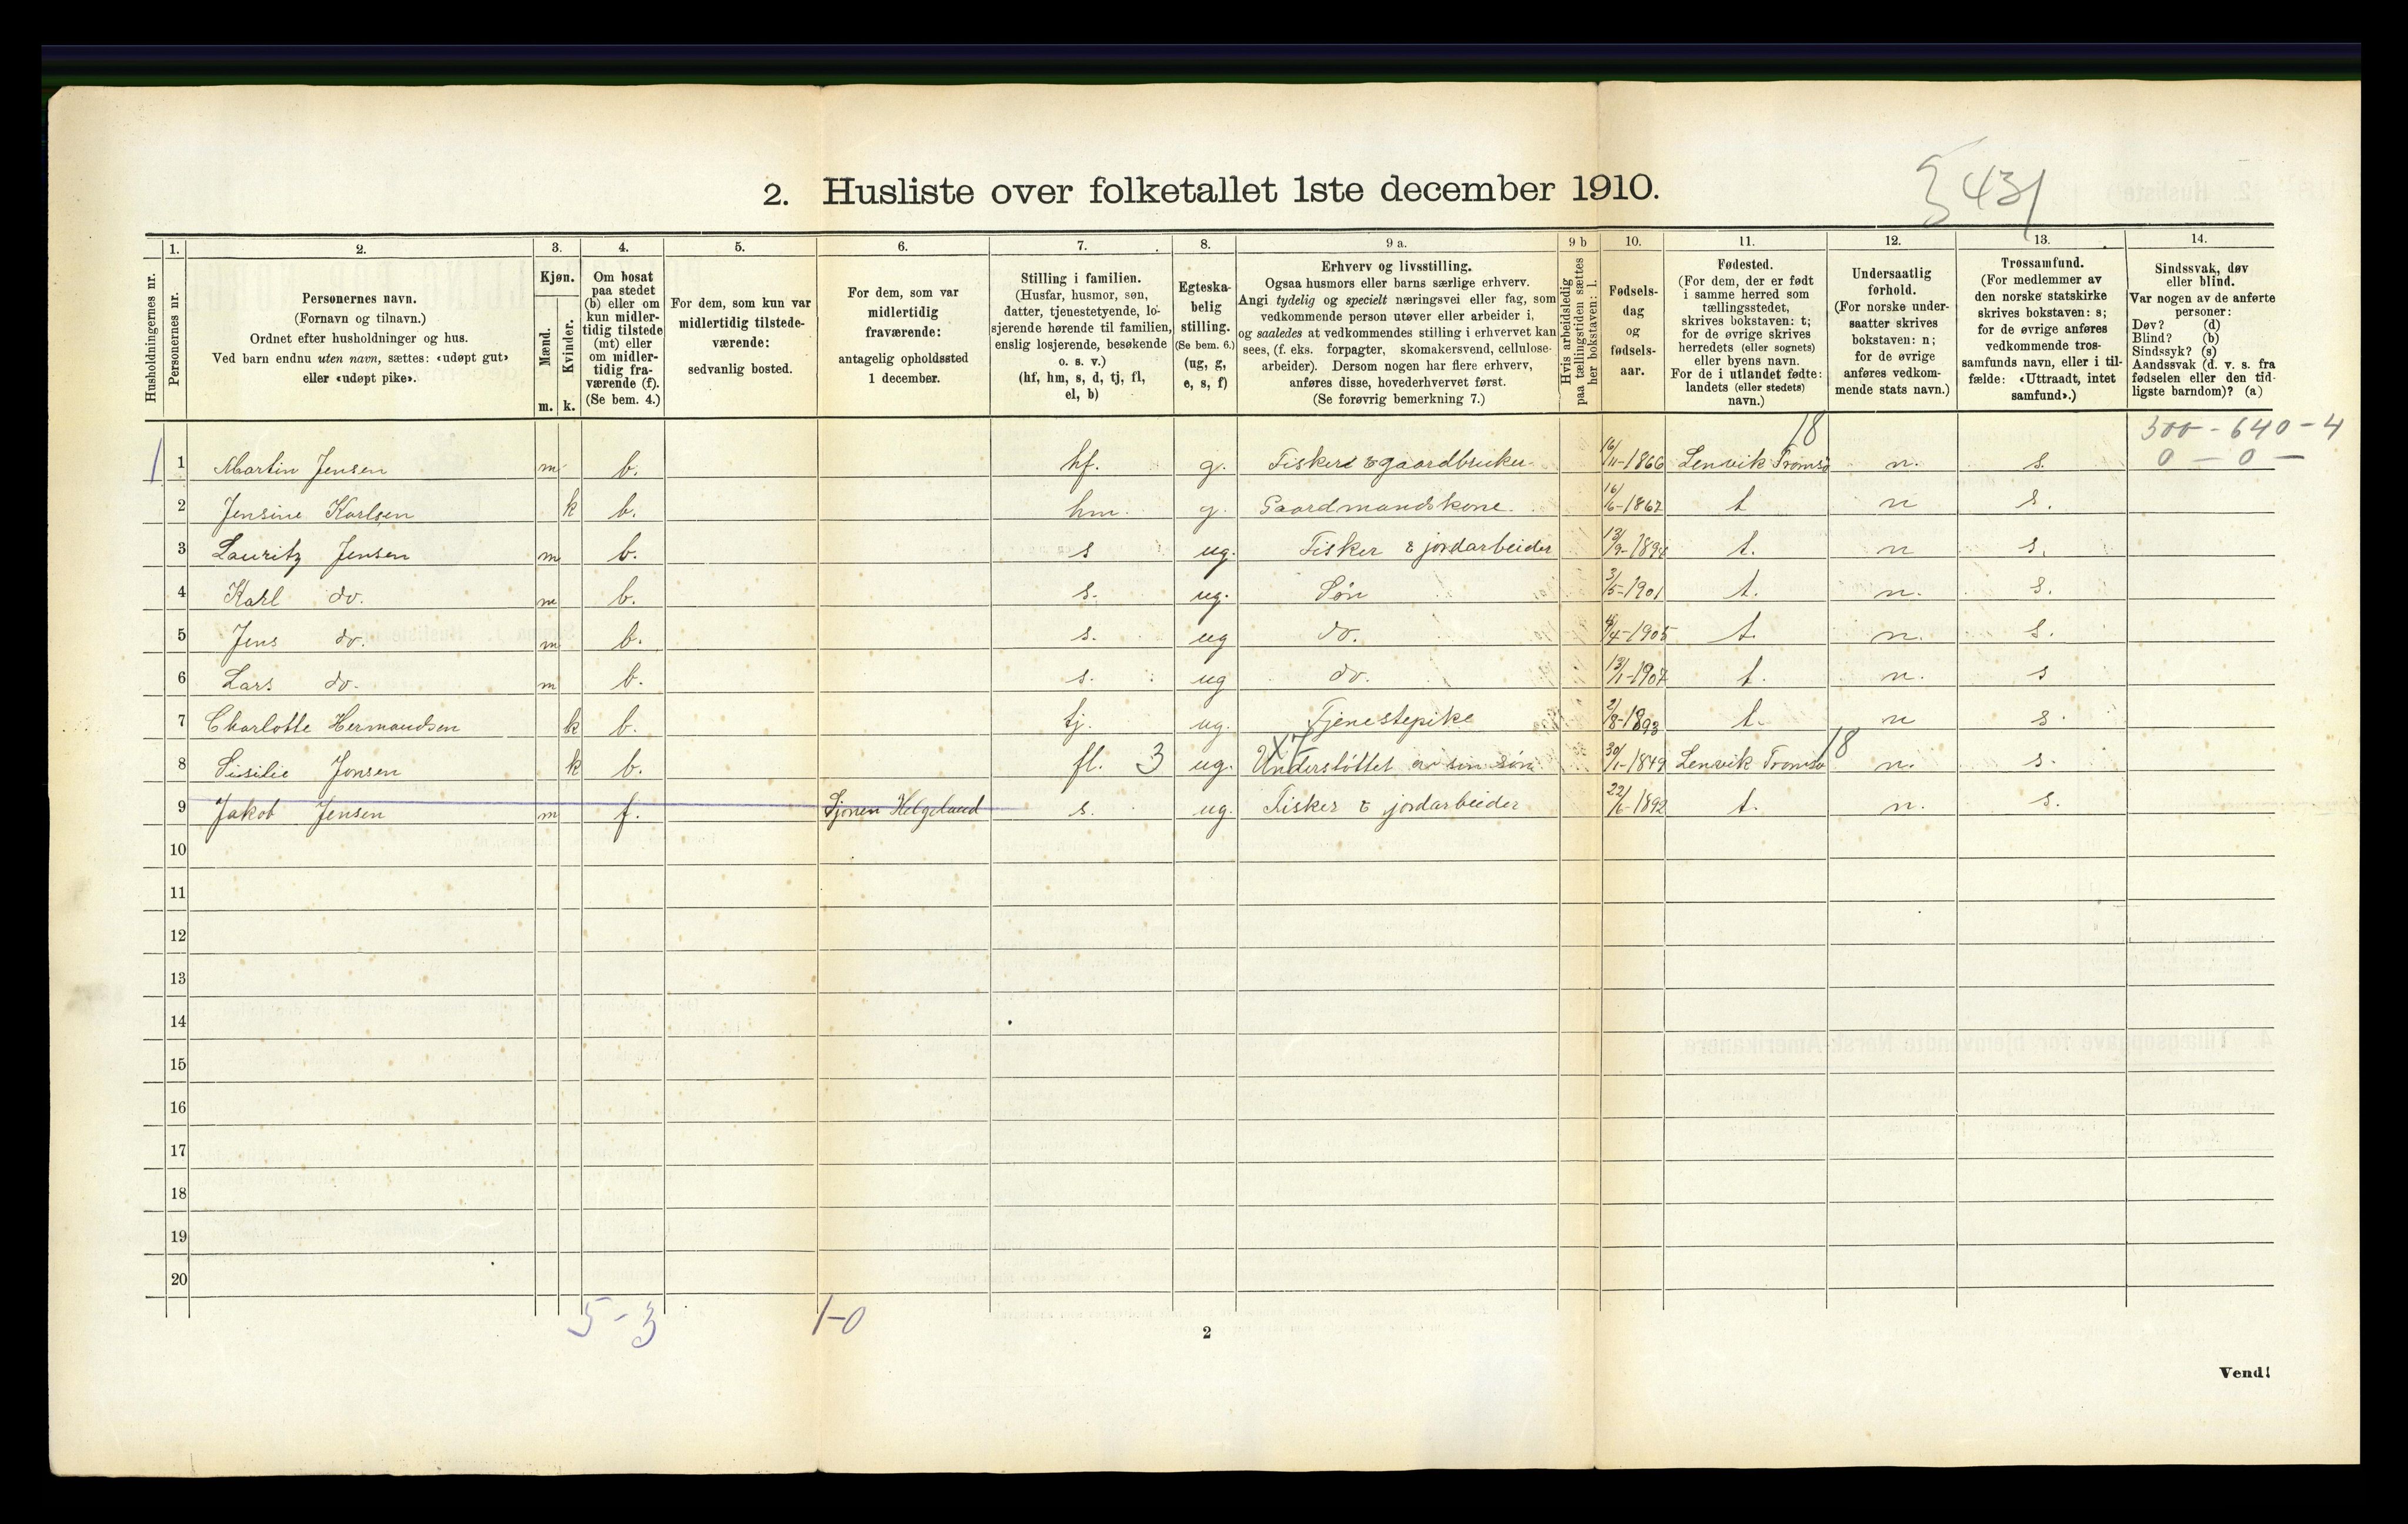 2. Husliste over folketallet 1ste december 1910.
431
Husholdningernes nr.
1. Personernes nr.
2. Personernes navn. (Fornavn og tilnavn.) Ordnet efter husholdninger og hus. Ved barn endnu uten navn, sættes: «udøpt gut» eller «udøpt pike».
3. Kjøn. Mænd. m. Kvinder. k.
4. Om bosat paa stedet (b) eller om kun midlertidig tilstede (mt) eller om midlertidig fraværende (f). (Se bem. 4.)
5. For dem, som kun var midlertidig tilstedeværende: sedvanlig bosted.
6. For dem, som var midlertidig fraværende: antagelig opholdssted 1 december.
7. Stilling i familien. (Husfar, husmor, søn, datter, tjenestetyende, losjerende hørende til familien, enslig losjerende, besøkende o. s. v.) (hf, hm, s, d, tj, fl, el, b)
8. Egteskabelig stilling. (Se bem. 6.) (ug, g, e, s, f)
9 a. Erhverv og livsstilling. Ogsaa husmors eller barns særlige erhverv. Angi tydelig og specielt næringsvei eller fag, som vedkommende person utøver eller arbeider i, og saaledes at vedkommendes stilling i erhvervet kan sees, (f. eks. forpagter, skomakersvend, cellulosearbeider). Dersom nogen har flere erhverv, anføres disse, hovederhvervet først. (Se forøvrig bemerkning 7.)
9 b Hvis arbeidsledig paa tællingstiden sættes her bokstaven: l.
10. Fødselsdag og fødselsaar.
11. Fødested. (For dem, der er født i samme herred som tællingsstedet, skrives bokstaven: t; for de øvrige skrives herredets (eller sognets) eller byens navn. For de i utlandet fødte: landets (eller stedets) navn.)
12. Undersaatlig forhold. (For norske undersaatter skrives bokstaven: n; for de øvrige anføres vedkommende stats navn.)
13. Trossamfund. (For medlemmer av den norske statskirke skrives bokstaven: s; for de øvrige anføres vedkommende trossamfunds navn, eller i tilfælde: «Uttraadt, intet samfund».)
14. Sindssvak, døv eller blind. Var nogen av de anførte personer: Døv? (d) Blind? (b) Sindssyk? (s) Aandssvak (d. v. s. fra fødselen eller den tidligste barndom)? (a)
18 500 - 640 - 4
0 - 0 -
1 1 Martin Jensen m b. hf. g. Fisker & gaardbruker 16/11-1866 Lenvik Tromsø n. s.
2 Jensine Karlsen k b. hm. g. Gaardmandskone. 16/6-1867 t n s.
3 Lauritz Jensen m b. s ug. Fisker & jordarbeider t. n s.
4 Karl do. m b. s. ug. Søn 3/5-1901 t. n. s.
5 Jens do. m b. s. ug do. t. n. s.
6 Lars do. m b. s. ug do. 13/1-1907 t. n. s
7 Charlotte Hermandsen k b. tj. ug. Tjenestepike 2/8-1893 t. n s.
8 Sisilie Jonsen k b. fl. 3 ug. Understøttet av sin søn 30/1-1849 Lenvik Tromsø 18 n. s.
9 Jakob Jensen m f. Sjonen Helgeland s. ug. Fisker & jordarbeider 22/6-1892 t. n. s.
10
11
12
13
14
15
16
17
18
19
20
5-3 1-0
2
Vend!